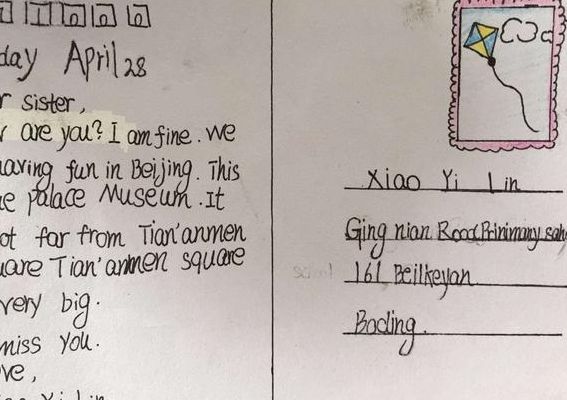 day April 28
r sister,
are you? I am fine. We
aving fun in Beijing. This
e palace Museum. It
ot far from Tian'anmen
uare Tian'anmen square
very big.
miss You.
ve,
Xiao Yi Lin
Ging nian Road
161 Beilkeyan
Boding.